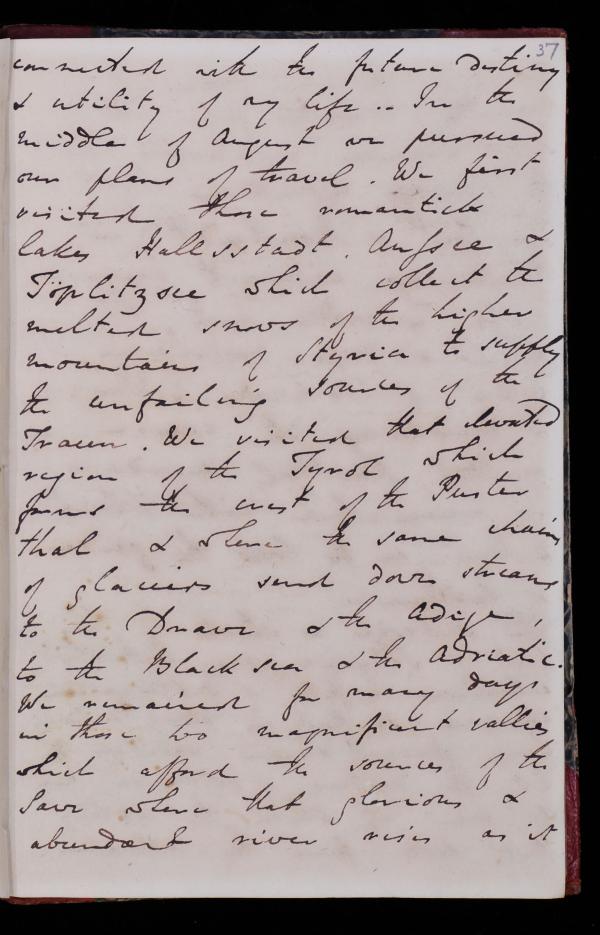 37
connected with the future destiny
& utility of my life .. In the
middle of August we pursued
our plans of travel . We first
visited those romantick
lakes Hallsstadt . Aussee &
Töplitzsee which collect the
melted snows of the higher
mountains of Styria to supply
the unfailing sources of the
Traun . We visited that elevated
region of the Tyrol which
forms the crest of the Puster
thal & where the same chains
of glaciers send down streams
to the Drave & the Adige ,
to the Black sea & the Adriatic .
We remained for many days
in those two magnificent vallies
which afford the sources of the
Save where that glorious &
abundant river rises as it